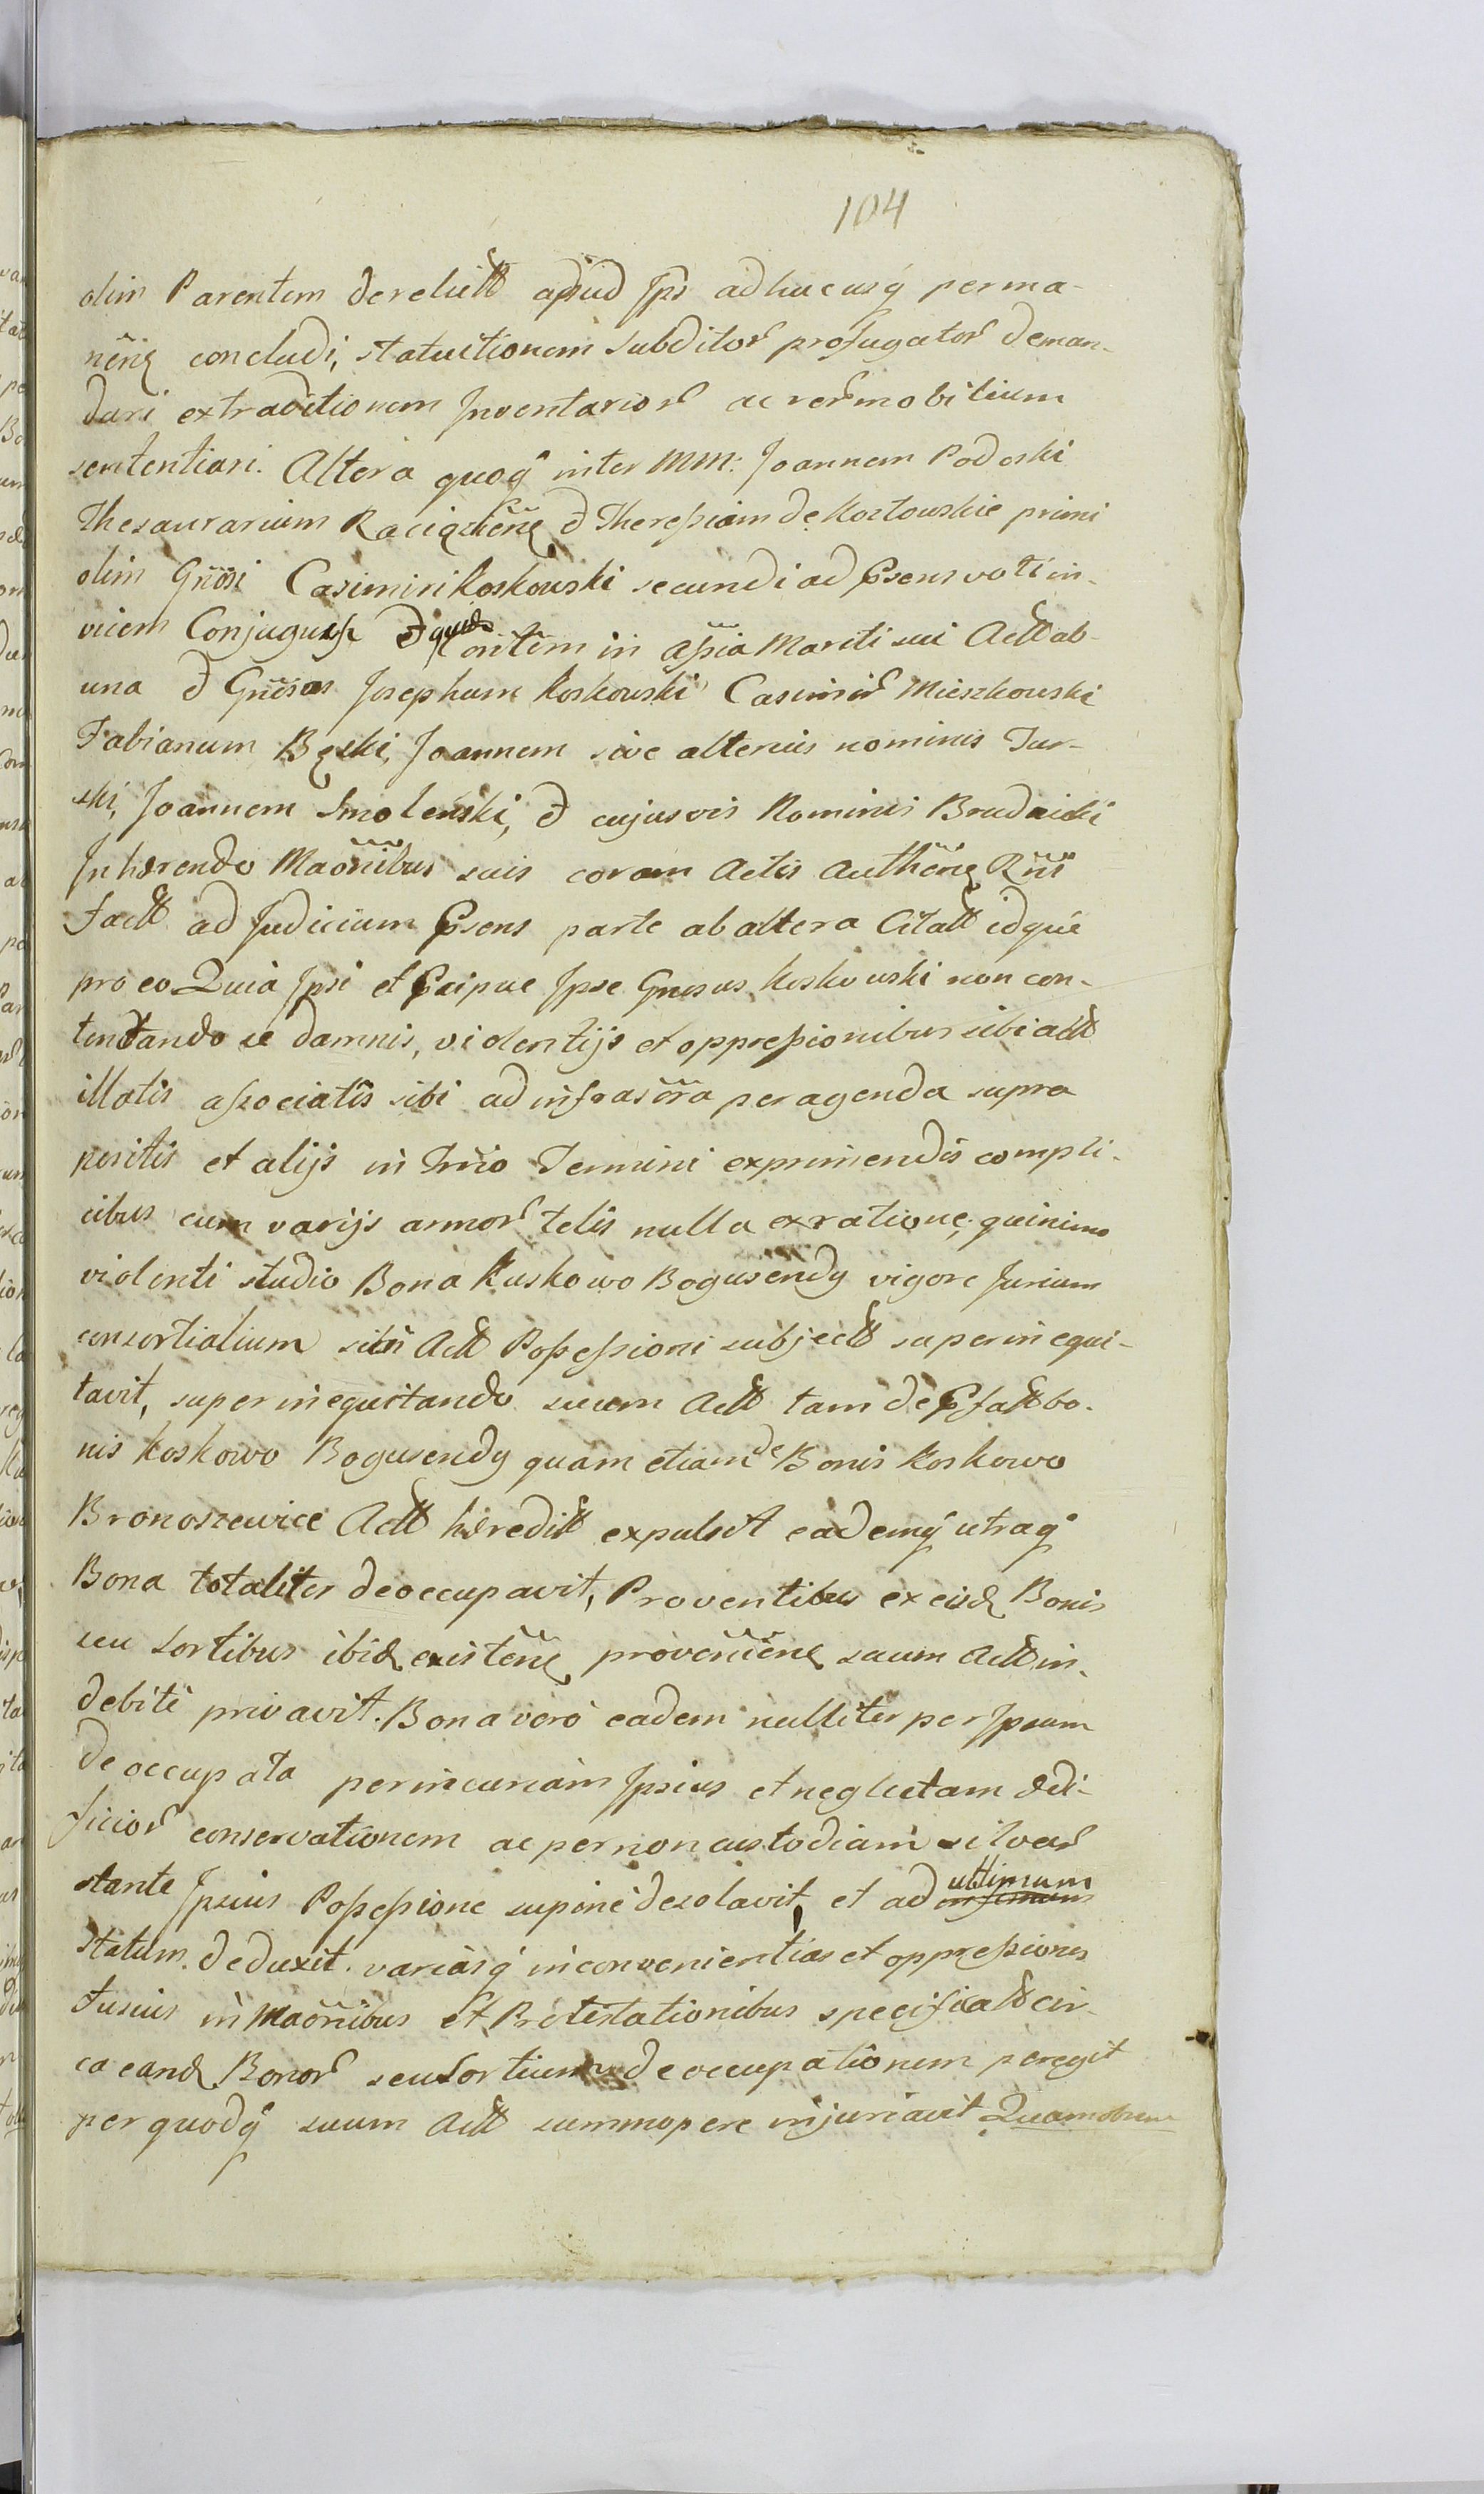 104
olim Parentem derelictt apud Ips adhucusq perma-
nen̄q concludi, statuitionem subditor profugator deman-
dari extraditionem Inventarior ac rer mobilium
sententiari. Altera quoq inter MM: Joannem Podoski
Thesaurarium Raciązien̄q & Theressiam de Kozłowskie primi
olim Gnosi Casimiri Koskowski secundi ad Psens voti in-
vicem Conjuguss & quid ontem in assia Mariti sui Actt ab
una & Gnosos Josephum Koskowski Casimir Mieszkowski
Fabianum Bęski, Joannem sive alterius nominis Tur-
ski, Joannem Smoleński, & cujusvis Nominis Brudnicki
Inhærendo Maōnibus suis coram Actis Authēnq Rnīs
Factt ad Judicium Psens parte ab altera Citatt idque
pro eo Quia Ipsi et Pcipue Ipse Gnosus Koskowski non con-
tentando se damnis, violentijs et oppressionibus sibi actt
illatis associatis sibi ad infrascra peragenda supra
positis et alijs in Trnio Termini exprimendis compli-
cibus cum varijs armor telis nulla ex ratione, quinimo
violenti studio Bona Kuskowo Bogusendy vigore Jurium
consortialium sibi Actt Possessioni subjectt superinequi-
tavit, superinequitando suum Actt tam de Pfatt bo-
nis Koskowo Bogusendy quam etiam de Bonis Koskowo
Bronoszewice Actt hæreditt expulsit eademq utraq
Bona totaliter deoccupavit, Proventibus ex eisd Bonis
seu Sortibus ibid existēnq provenīenq suum Actt in-
debite privavit. Bona vero eadem nulliter per Ipsum
deoccupata per incuriam Ipsius et neglectam ædi-
ficior conservationem ac per non custodiam silvar
stante Ipsius Possessione supine desolavit, et ad infimum ultimum
statum deduxit variasq inconvenientias et oppressiones
fusius in Maōnibus et Protestationibus specificatt cir-
ca eand Bonor seu Sortium deoccupationem peregit
per quodq suum Actt summopere injuriavit Quamobrem